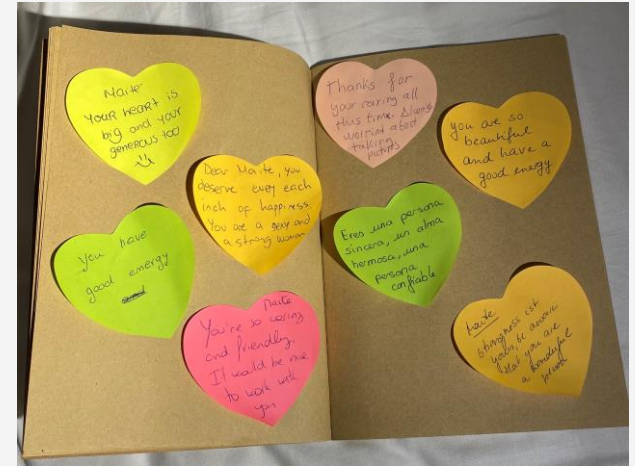 Maite
YOUR HEART IS
big and your
generous too
Dear Maite, you
deserve every each
inch of happiness.
You are a sexy and
a strong woman
you have
good energy
Maite
You're so caring
and friendly.
It would be nice
to work with
you
Thanks for
your caring all
this time. Always
worried about
taking
pictures
you are so
beautiful
and have a
good energy
Eres una persona
sincera, un alma
hermosa, una
persona
confiable
Maite
be aware
that you are
a wonderful
person